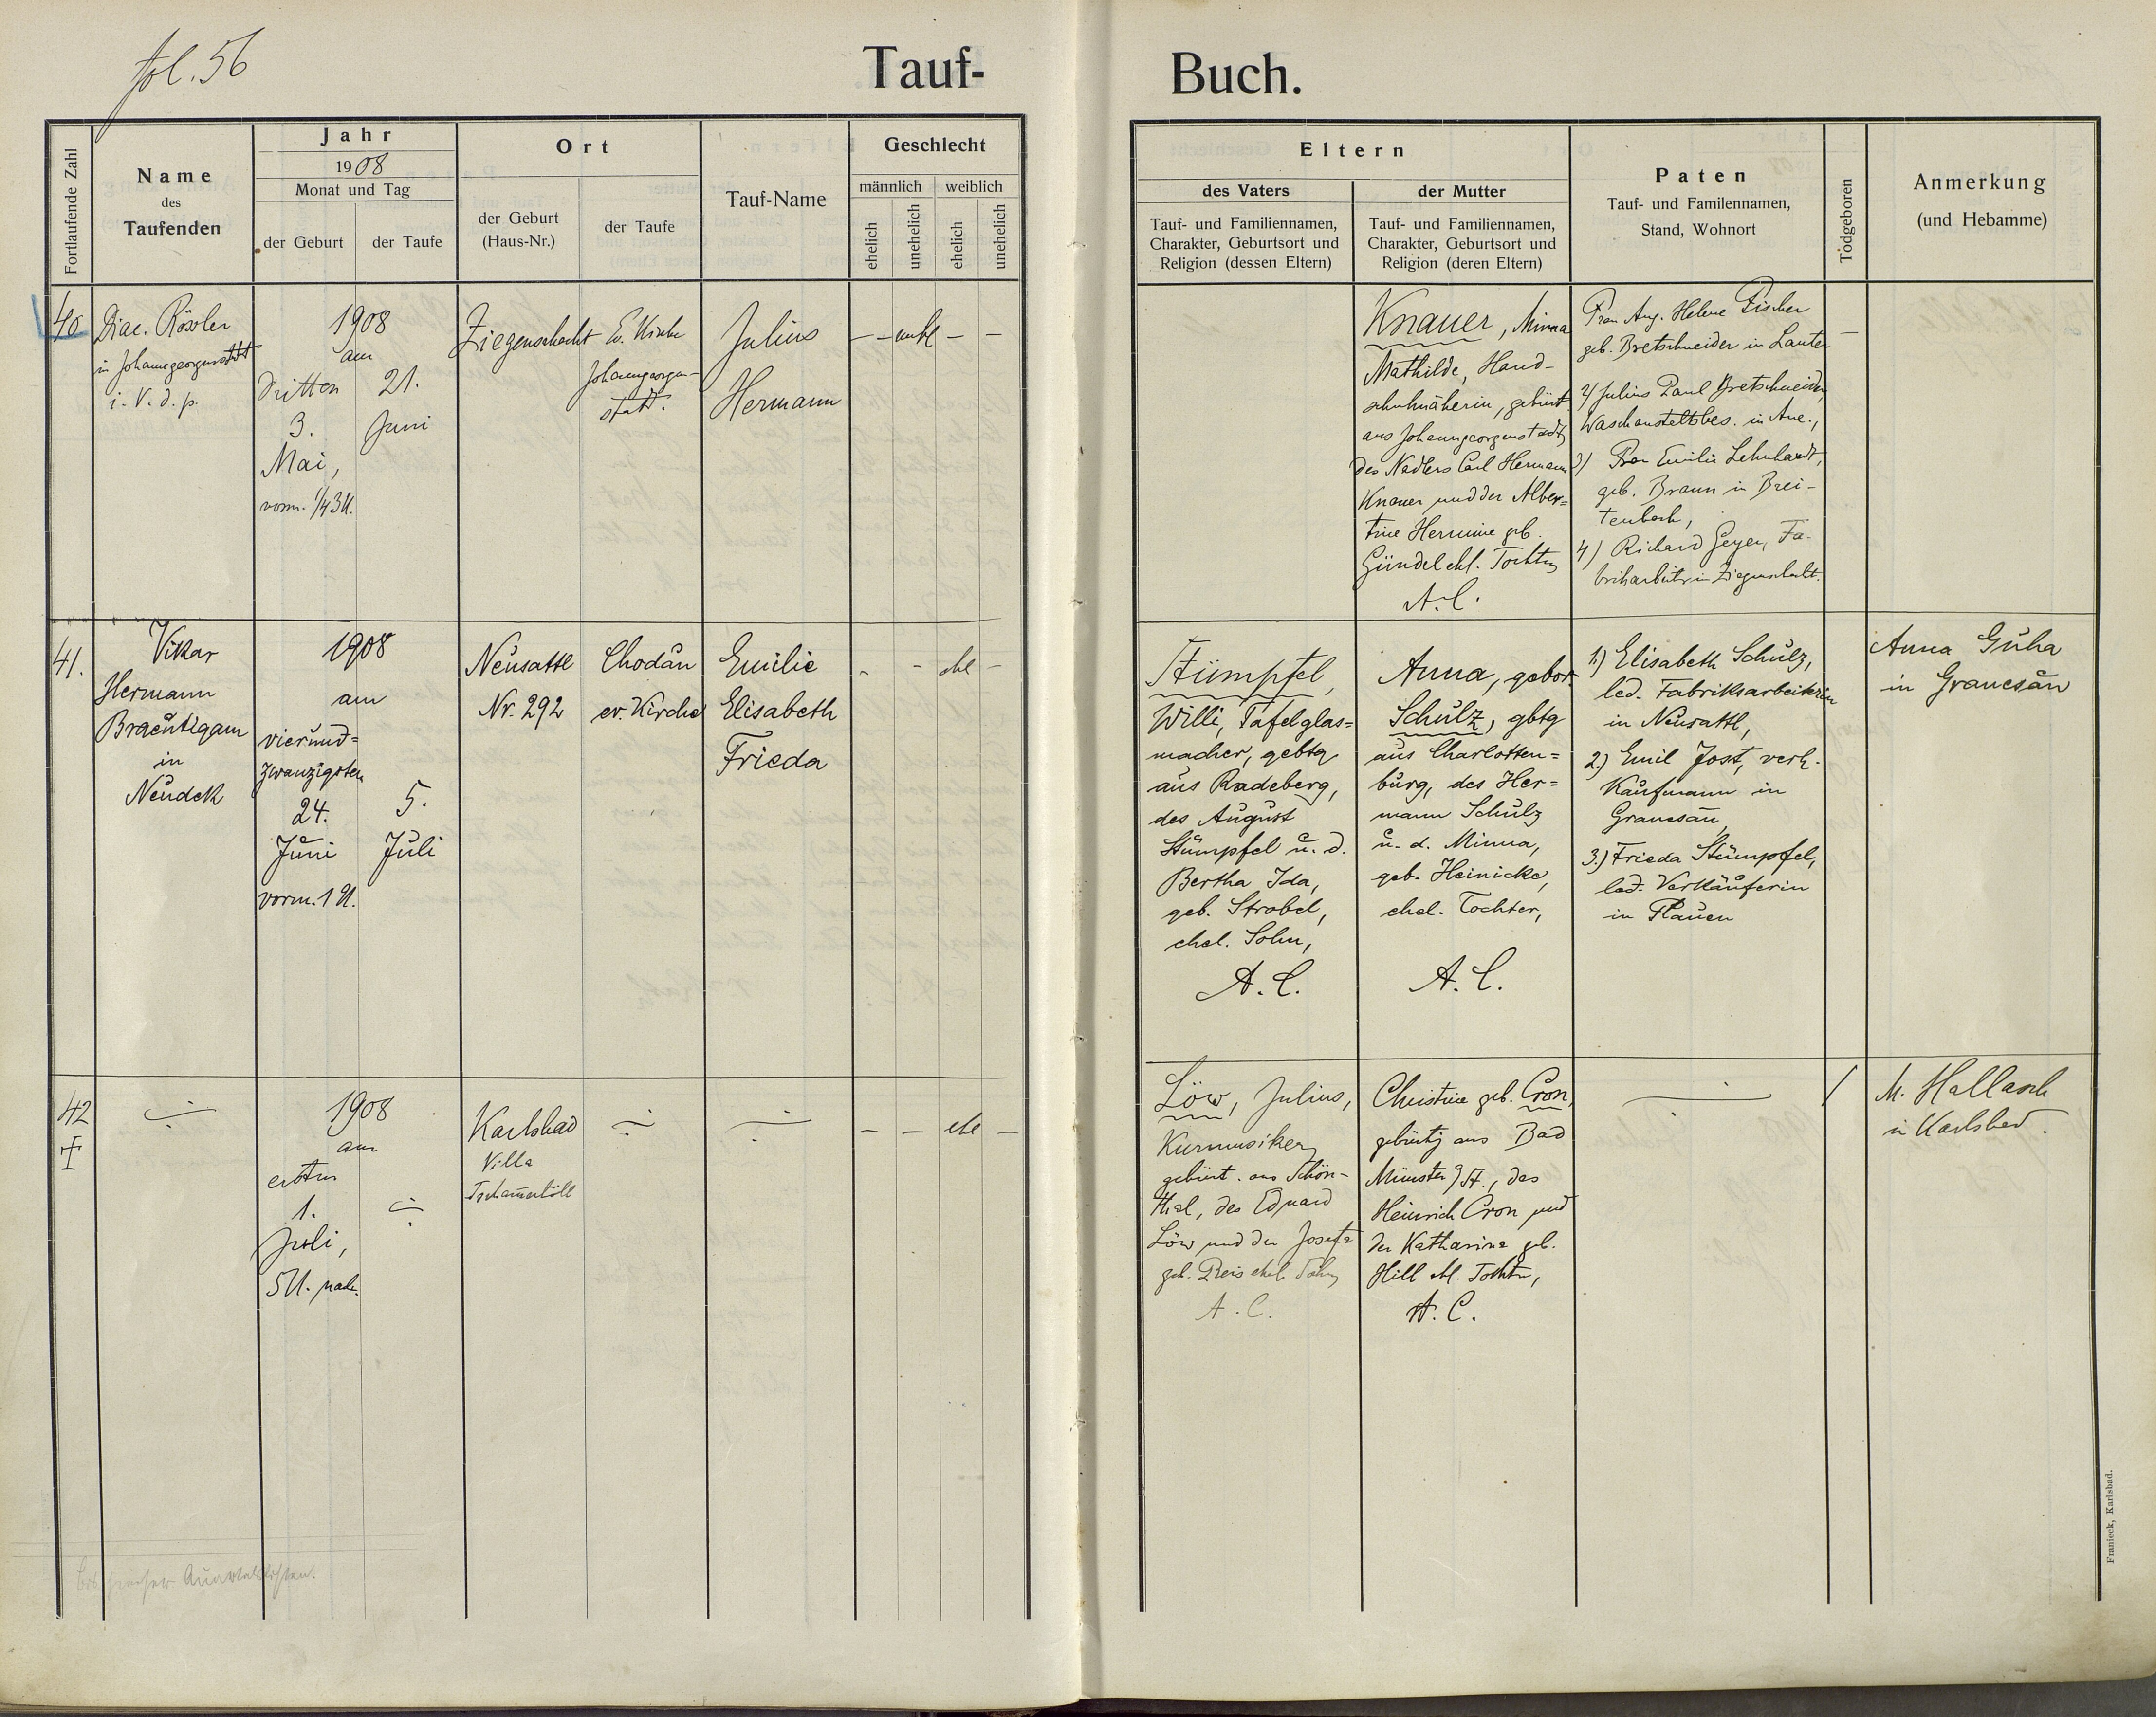 fol. 56
Tauf-
Buch.
Fortlaufende Zahl
Name
des
Taufenden
Jahr
1908
Monat und Tag
der Geburt
der Taufe
Ort
der Geburt
(Haus-Nr.)
der Taufe
Tauf-Name
Geschlecht
männlich
weiblich
ehelich
unehelich
ehelich
unehelich
Eltern
des Vaters
Tauf- und Familiennamen,
Charakter, Geburtsort und
Religion (dessen Eltern)
der Mutter
Tauf- und Familiennamen,
Charakter, Geburtsort und
Religion (deren Eltern)
Paten
Tauf- und Familennamen,
Stand, Wohnort
Todgeboren
Anmerkung
(und Hebamme)
40.
Diac. Rössler
in Johanngeorgenstadt
i. V. d. p.
1908
am
Dritten
3.
Mai,
vorm. 1/43 U.
21.
Juni
Ziegenschacht
Ev. Kirche
Johanngeorgen-
stadt.
Julius
Hermann
- - unehl - -
Knauer, Minna
Mathilde, Hand-
schuhnäherin, gebürt.
aus Johanngeorgenstadt,
des Nadlers Carl Hermann
Knauer und der Alber=
tine Hermine geb.
Gündel ehl. Tochter,
A.C.
Frau Aug. Helene Fischer
geb. Bretschneider in Lauter
2) Julius Paul Bretschneider,
Waschanstaltsbes. in Aue.,
3) Frau Emilie Lehnhardt,
geb. Braun in Brei-
tenbach,
4) Richard Geyer, Fa-
brikarbeiter in Ziegenschacht.
–
41.
Vikar
Hermann
Braeutigam
in
Neudek
1908
am
vierund=
zwanzigsten
24.
Juni
vorm. 1 U.
5.
Juli
Neusattl
Nr. 292
Chodau
ev. Kirche
Emilie
Elisabeth
Frieda
- - ehl -
Stümpfel,
Willi, Tafelglas=
macher, gebtg
aus Radeberg,
des August
Stümpfel u. d.
Bertha Ida,
geb. Strobel,
ehel. Sohn,
A. C.
Anna, gebor.
Schulz, gbtg
aus Charlotten=
burg, des Her=
mann Schulz
u. d. Minna,
geb. Heinicke,
ehel. Tochter,
A. C.
1.) Elisabeth Schulz,
led. Fabriksarbeiterin
in Neusattl,
2.) Emil Jost, verh.
Kaufmann in
Granesau,
3.) Frieda Stümpfel,
led. Verkäuferin
in Plauen
Anna Guha
in Granesau
42
1908
am
ersten
1.
Juli,
5 U. nach.
Karlsbad
Villa
- - ehl -
Löw, Julius,
Kurmusiker,
gebürt. aus Schön-
thal, des Eduard
Löw und der Josefa
geb. Preis ehel. Sohn,
A. C.
Christine geb. Cron,
gebürtig aus Bad
Münster a/St., des
Heinrich Cron und
der Katharina geb.
Hill ehl. Tochter,
A. C.
/
M. Hallasch
in Karlsbad.
Franieck, Karlsbad.